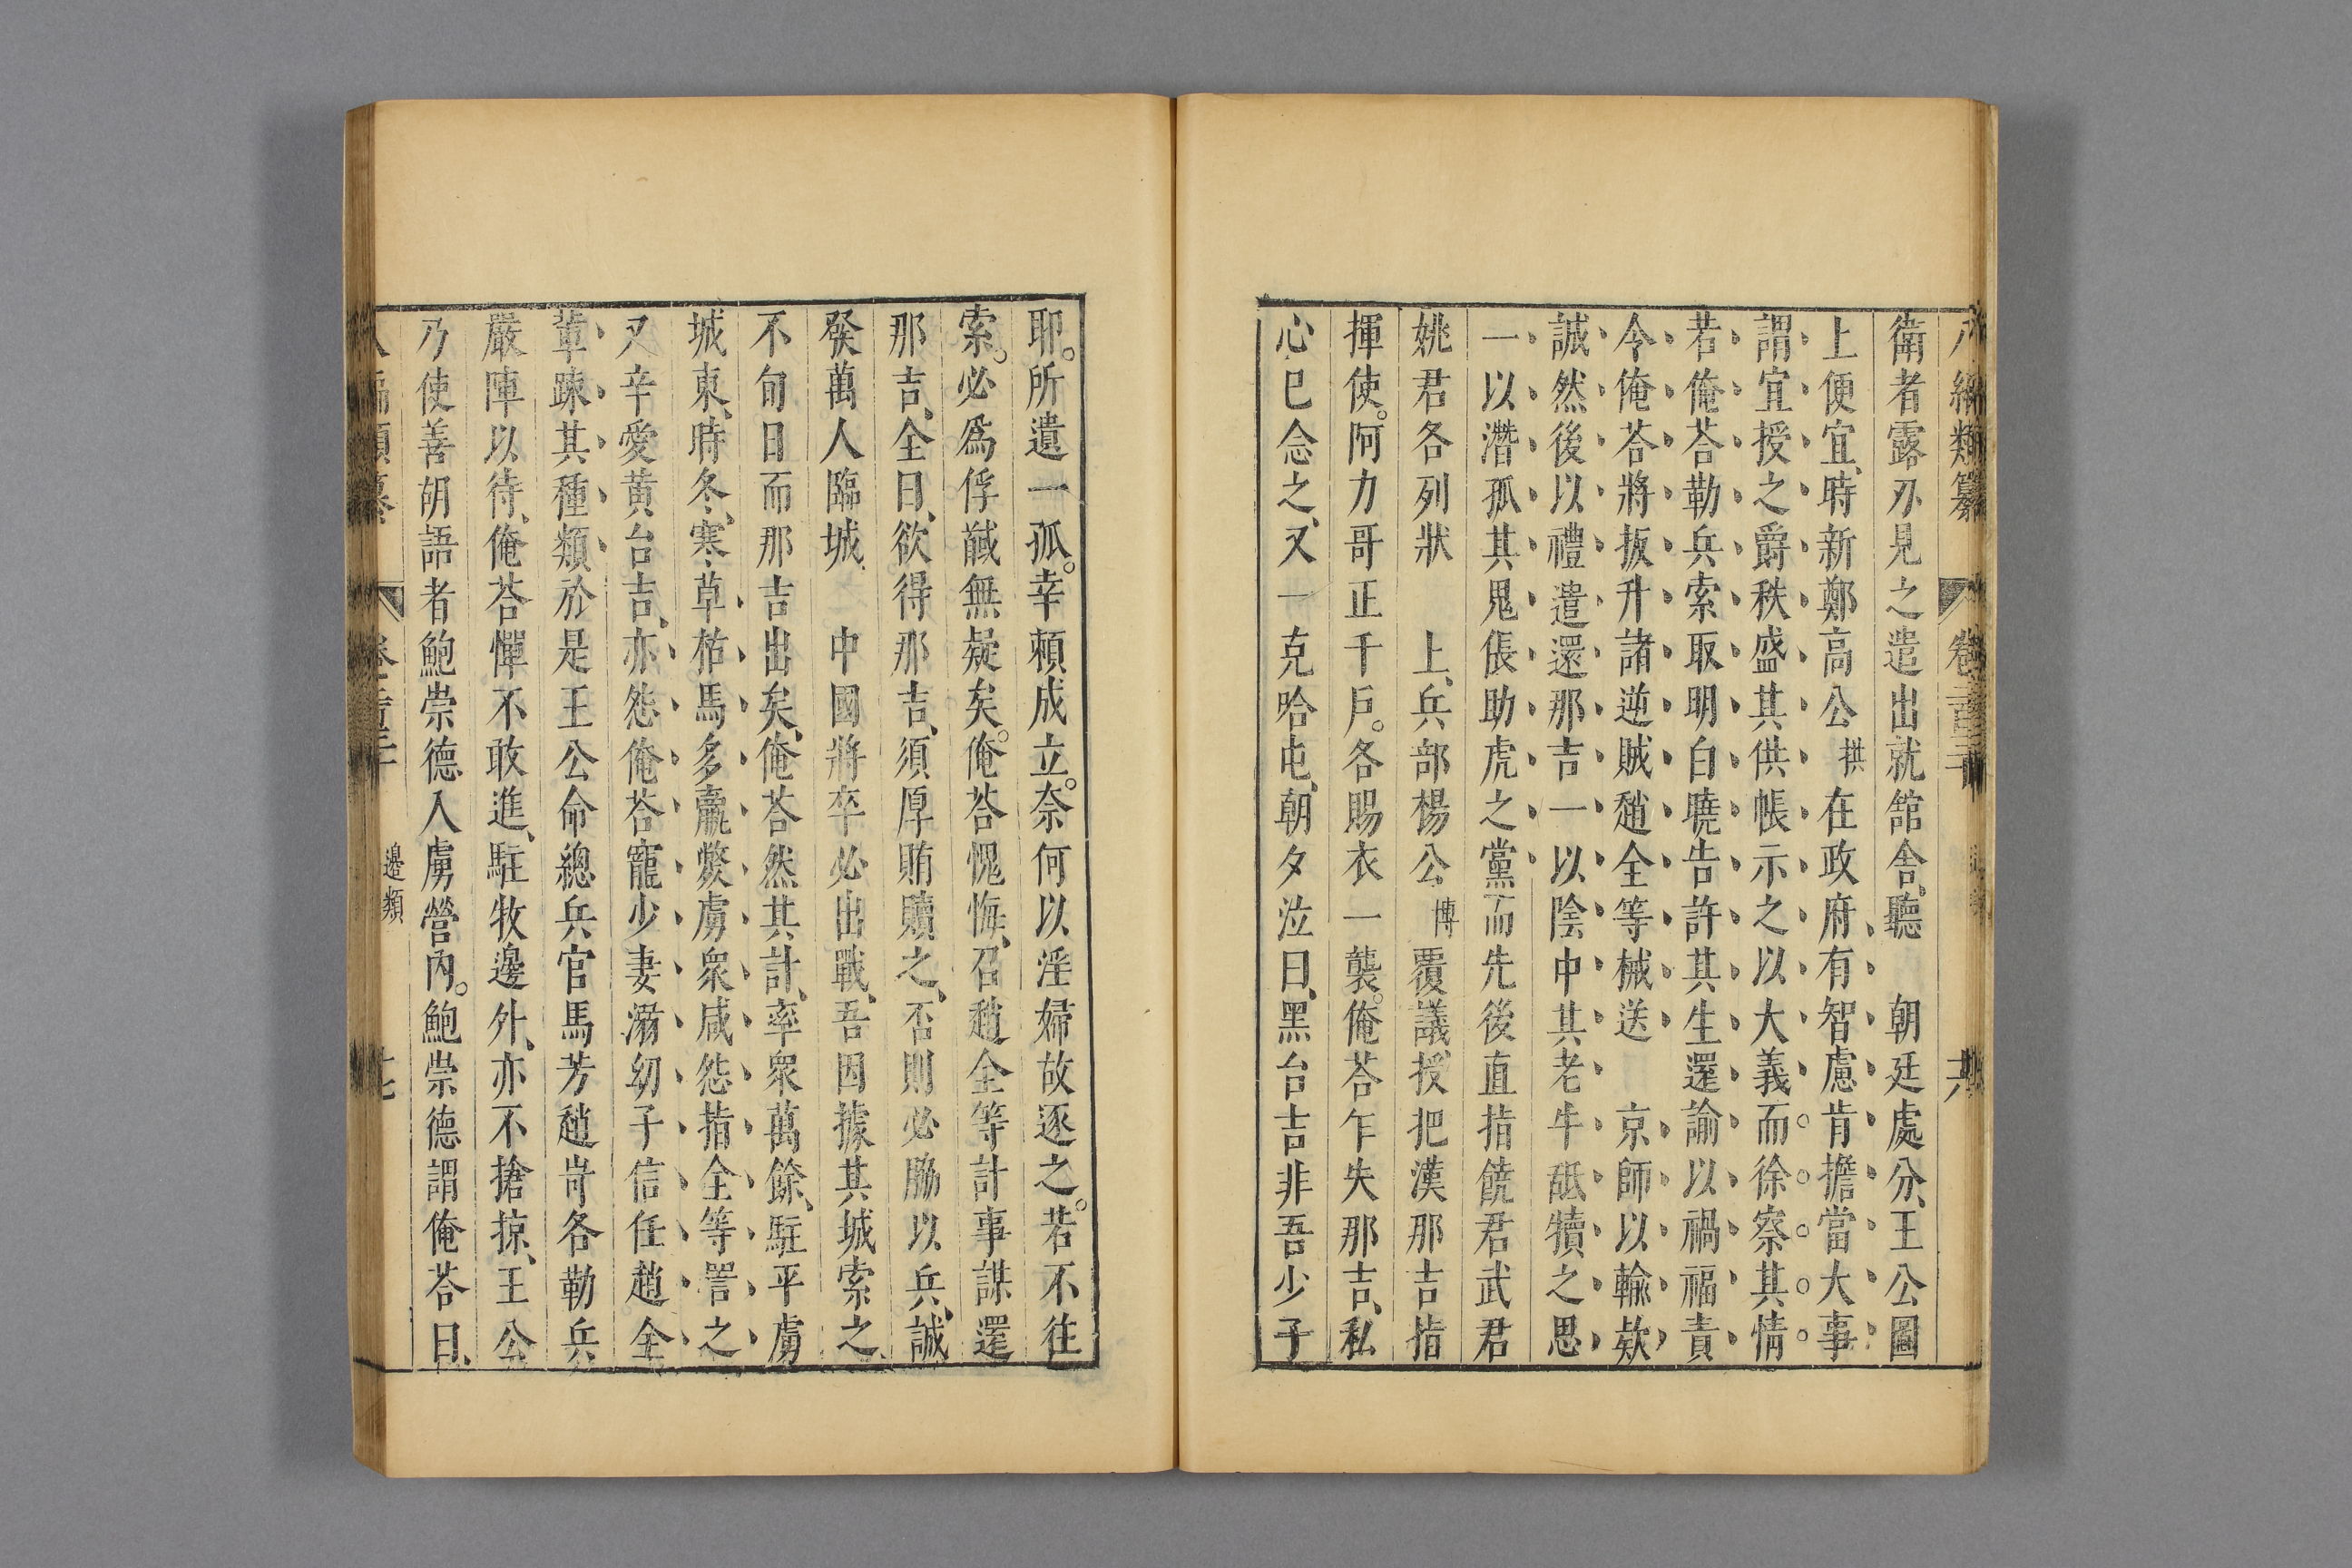 八編類纂 卷二百三十 十六
衛者露刃見之遣出就舘舍、聽 朝廷處分、王公圖
上便宜、時新鄭高公 拱 在政府、有智慮肯擔當大事
謂宜授之爵秩盛其供帳示之以大義而徐察其情
若俺荅勒兵索取明白曉告許其生還諭以禍福責
令俺荅將扳升諸逆賊趙全等械送 京師以輸欵
誠然後以禮遣還那吉一以陰中其老牛舐犢之思
一以潛孤其鬼倀助虎之黨而先後直指饒君武君
姚君各列狀 上、兵部楊公 博 覆議、授把漢那吉指
揮使。阿力哥正千戶。各賜衣一襲。俺荅乍失那吉、私
心已念之、又一克哈屯、朝夕泣曰、黑台吉非吾少子
耶。所遺一孤。幸頼成立。奈何以淫婦故逐之。若不往
索。必爲俘馘無疑矣。俺荅愧悔、召趙全等計事謀還
那吉、全曰、欲得那吉、須厚賄贖之、否則必脇以兵、誠
發萬人臨城 中國將卒必出戰、吾因據其城索之、
不旬日而那吉出矣、俺荅然其計、率衆萬餘、駐平虜
城東、時冬、寒、草枯馬多羸獘虜衆咸怨指全等詈之
又辛愛黄台吉、亦怨俺荅寵少妻溺幼子信任趙全
輩踈其種類於是王公命總兵官馬芳趙岢各勒兵
嚴陣以待、俺荅憚不敢進、駐牧邊外、亦不搶掠、王公
乃使善胡語者鮑崇德入虜營內。鮑崇德謂俺荅曰、
八編類纂 卷二百三十 邊類 十七